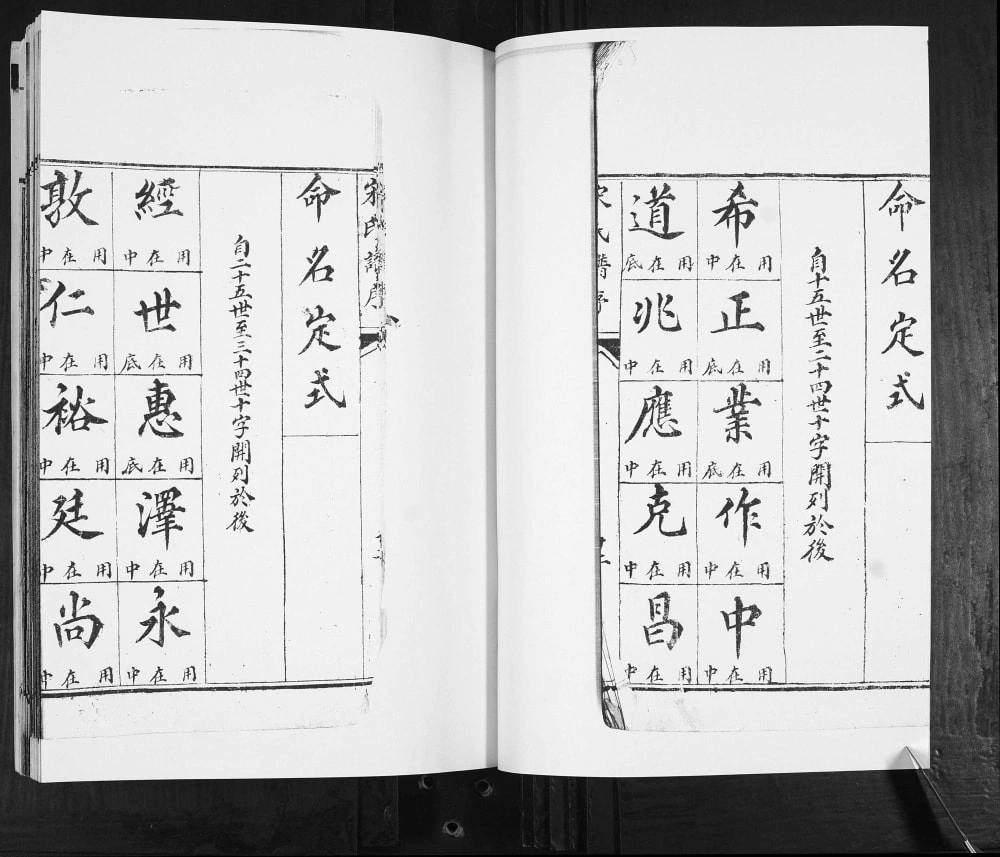 命名定式
自十五世至二十四世十字開列於後
希 用在中
正 用在底
業 用在底
作 用在中
中 用在中
道 用在底
兆 用在中
應 用在中
克 用在中
昌 用在中
宋氏譜序
宋氏譜序
命名定式
自二十五世至三十四世十字開列於後
經 用在中
世 用在底
惠 用在底
澤 用在中
永 用在中
敦 用在中
仁 用在中
裕 用在中
廷 用在中
尚 用在中